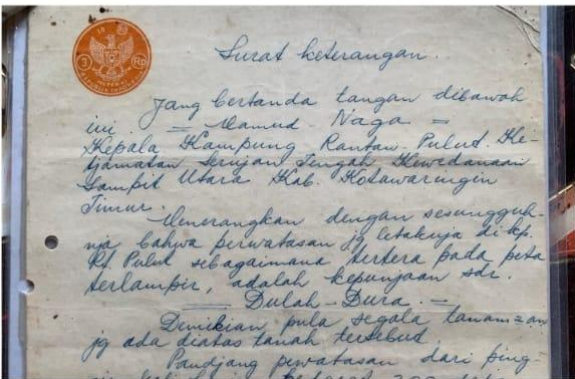 3 Rp
Surat keterangan.
Jang bertanda tangan dibawah
ini. = Mamud - Naga =
Kepala Kampung Rantau-Pulut. Ke-
tjamatan Serujan Tengah Kewedanaan
Sampit Utara Kab. Kotawaringin
Timur.
Menerangkan dengan sesungguh-
nja bahwa perwatasan jg letaknja di kp.
Rt. Pulut sebagaimana tertera pada peta
terlampir, adalah kepunjaan sdr.
= Dulah - Dura. =
Demikian pula segala tanam=an
jg ada diatas tanah tersebut
Pandjang pewatasan dari ping-